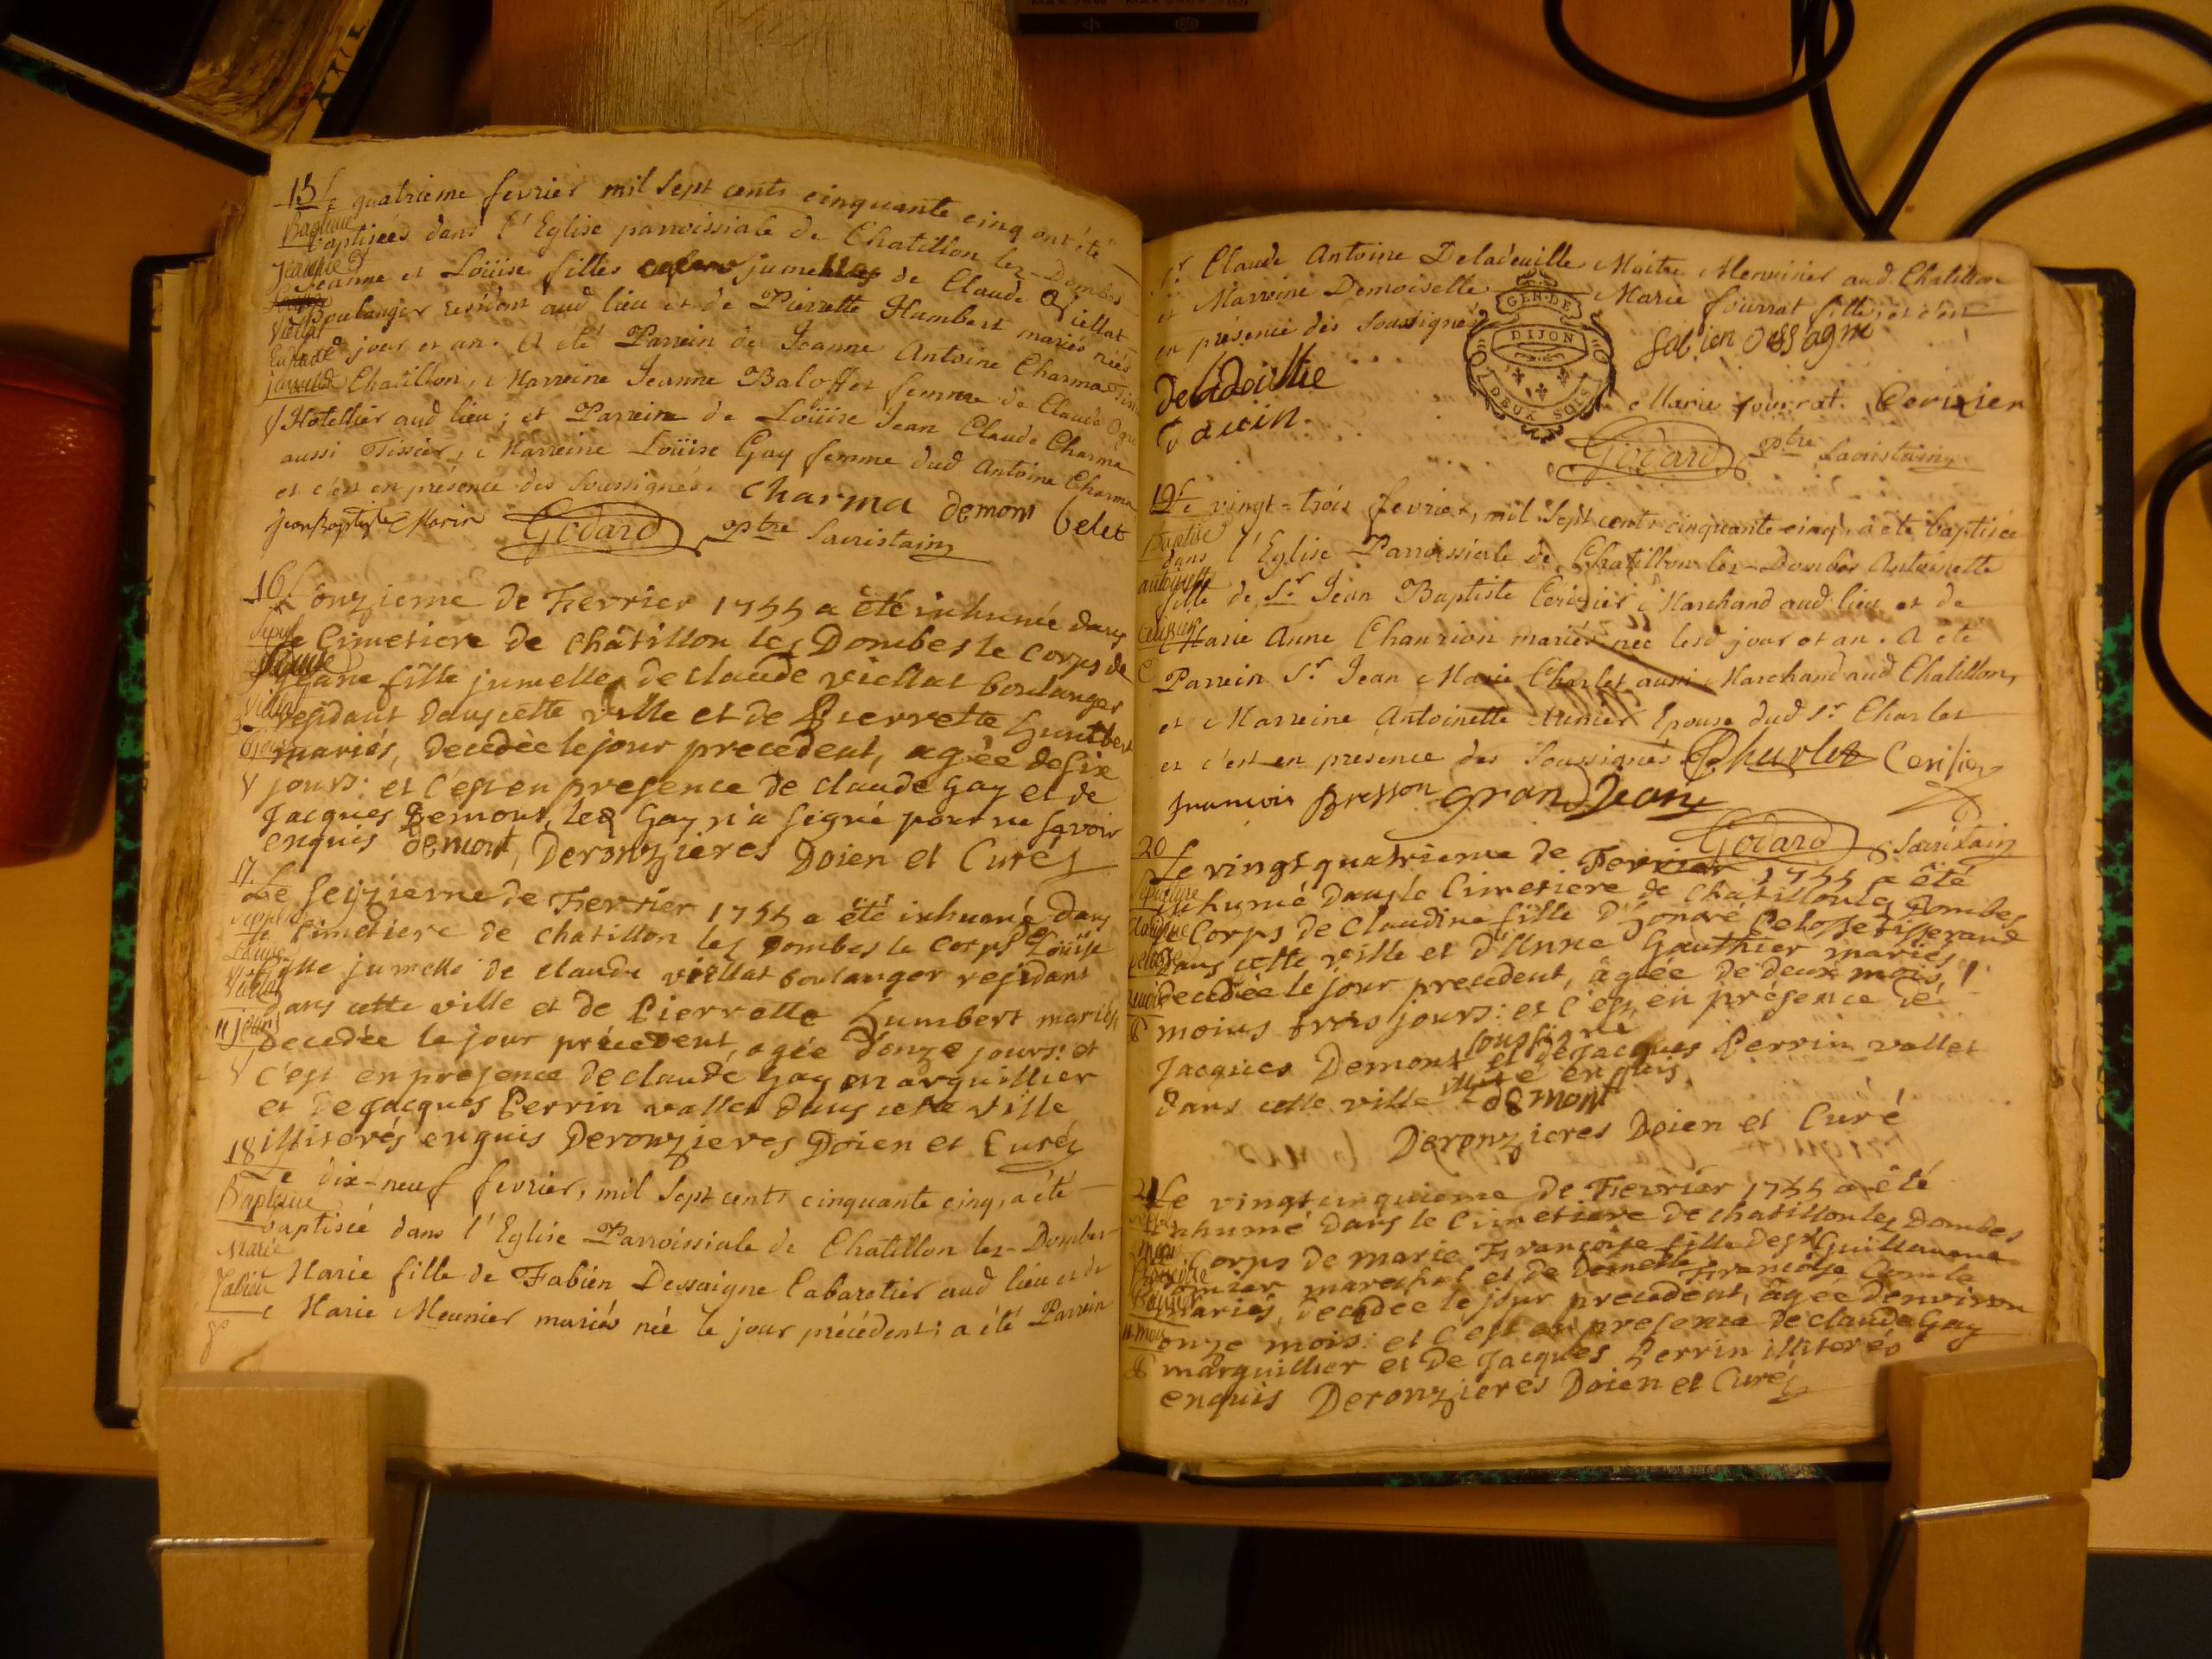 15 Le quatrieme fevrier mil sept cents cinquante cinq ont été
Bapteme
baptisées dans l'Eglise parroissiale de Chatillon lez-Dombes
Jeanne et
Jeanne et Loüise filles jumelles de Claude Viellat
Boulanger resident aud lieu et de Pierrette Humbert mariés néés
Viellat
jour et an. Et été Parrein de Jeanne Antoine Charma
Chatillon, Marreine Jeanne Baloffet femme de Claude
Hotellier aud lieu; et Parrein de Loüise Jean Claude Charma
aussi Tissier, Marreine Loüise Gay femme dud Antoine Charma
et c'est en présence des Soussignés. Charma Demont belet
Jean Baptiste Morin Godard ptre Sacristain
16 L'onzieme de Fevrier 1755 a été inhumé dans
Sepul
le Cimetiere de Châtillon les Dombes le Corps de
Jeane fille jumelle de claude viellat boulanger
Viellat
residant dans cette ville et de Pierrette humbert
6 jours
mariés, decedée le jour precedent, agée de six
jours: et c'est en presence de claude Gay et de
Jacques Demont, led Gay n'a signé pour ne savoir
enquis demont, Deronzieres Doien et Curé
17. Le seizieme de Fevrier 1755 a été inhumé dans
le Cimetiere de chatillon les Dombes le corps de Loüise
Louise
fille jumelle de claude viellat boulanger residant
Viellat
dans cette ville et de Pierrette humbert mariés,
11 jours
decedée le jour précedent, agée d'onze jours: et
c'est en presence de claude Gay marguillier
et de Jacques Perrin vallet dans cette ville
illiterés enquis Deronzieres Doien et Curé
18 Le dix-neuf fevrier, mil sept cents cinquante cinq, a été
Bapteme
baptisée dans l'Eglise Parroissiale de Chatillon lez-Dombes
Marie
Marie fille de Fabien Dessaigne Cabaretier aud lieu et de
Marie Meunier mariés née le jour précédent; a été Parrein
Sr Claude Antoine Deladeuille Maitre Menuisier aud Chatillon
et Marreine Demoiselle Marie fourrat fille; et c'est
en présence des Soussignés
GEN. DE
DIJON
DEUX SOLS
fabien dessagne
Deladoitlie
Marie fourrat. Cerizier
Godard ptre Sacristain
19 Le vingt-trois fevrier, mil sept cents cinquante cinq, a été baptisée
Baptise
dans l'Eglise Parroissiale de Chatillon lez-Dombes Antoinette
antoinette
fille de Sr Jean Baptiste Cerizier Marchand aud lieu et de
Marie Anne Chaurion mariés née lesd jour et an. A été
Parrein Sr Jean Marie Charlet aussi Marchand aud Chatillon,
et Marreine Antoinette Munier Epouse dud Sr Charlet
et c'est en presence des Soussignés Charlet Cerisier
francois Bresson Grand Jean
Godard Sacristain
20 Le vingt quatrieme de Fevrier 1755 a été
Sepulture
inhumé dans le Cimetiere de Chatillon les Dombes
Claudine
le Corps de Claudine fille d'Honoré Pelosse tisserand
pelosse
dans cette ville et d'Anne Gauthier mariés,
decedée le jour precedent, agée de deux mois
moins trois jours: et c'est en présence de
Jacques Demont soussigné et de Jacques Perrin vallet
dans cette ville illiteré enquis
demont
Deronzieres Doien et Curé
21 Le vingt cinquieme de Fevrier 1755 a été
inhumé dans le Cimetiere de chatillon les Dombes
le Corps de Marie Françoise fille de Sr Guillaume
Françoise
marechal et de Demelle Françoise Comte
mariés, decedée le jour precedent, agée denviron
11 mois
onze mois: et c'est en presence de claude Gay
marguillier et de Jacques Perrin illiterés
enquis Deronzieres Doien et Curé